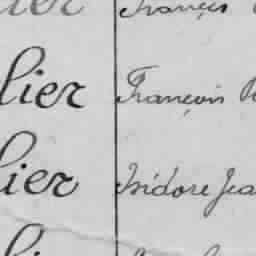 lier François
lier François
lier Isidore Jea